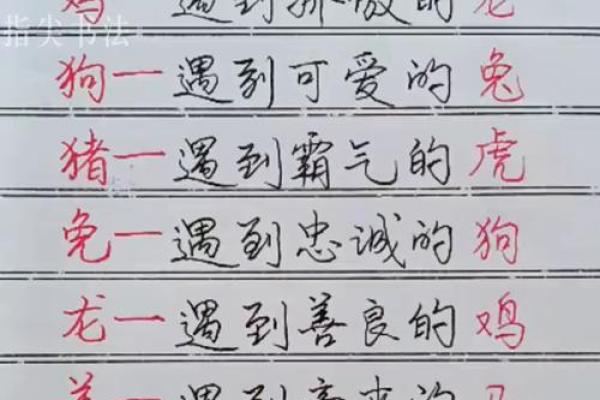 鸡一遇到骄傲的龙
指尖书法
狗一遇到可爱的兔
猪一遇到霸气的虎
兔一遇到忠诚的狗
龙一遇到善良的鸡
遇到的马